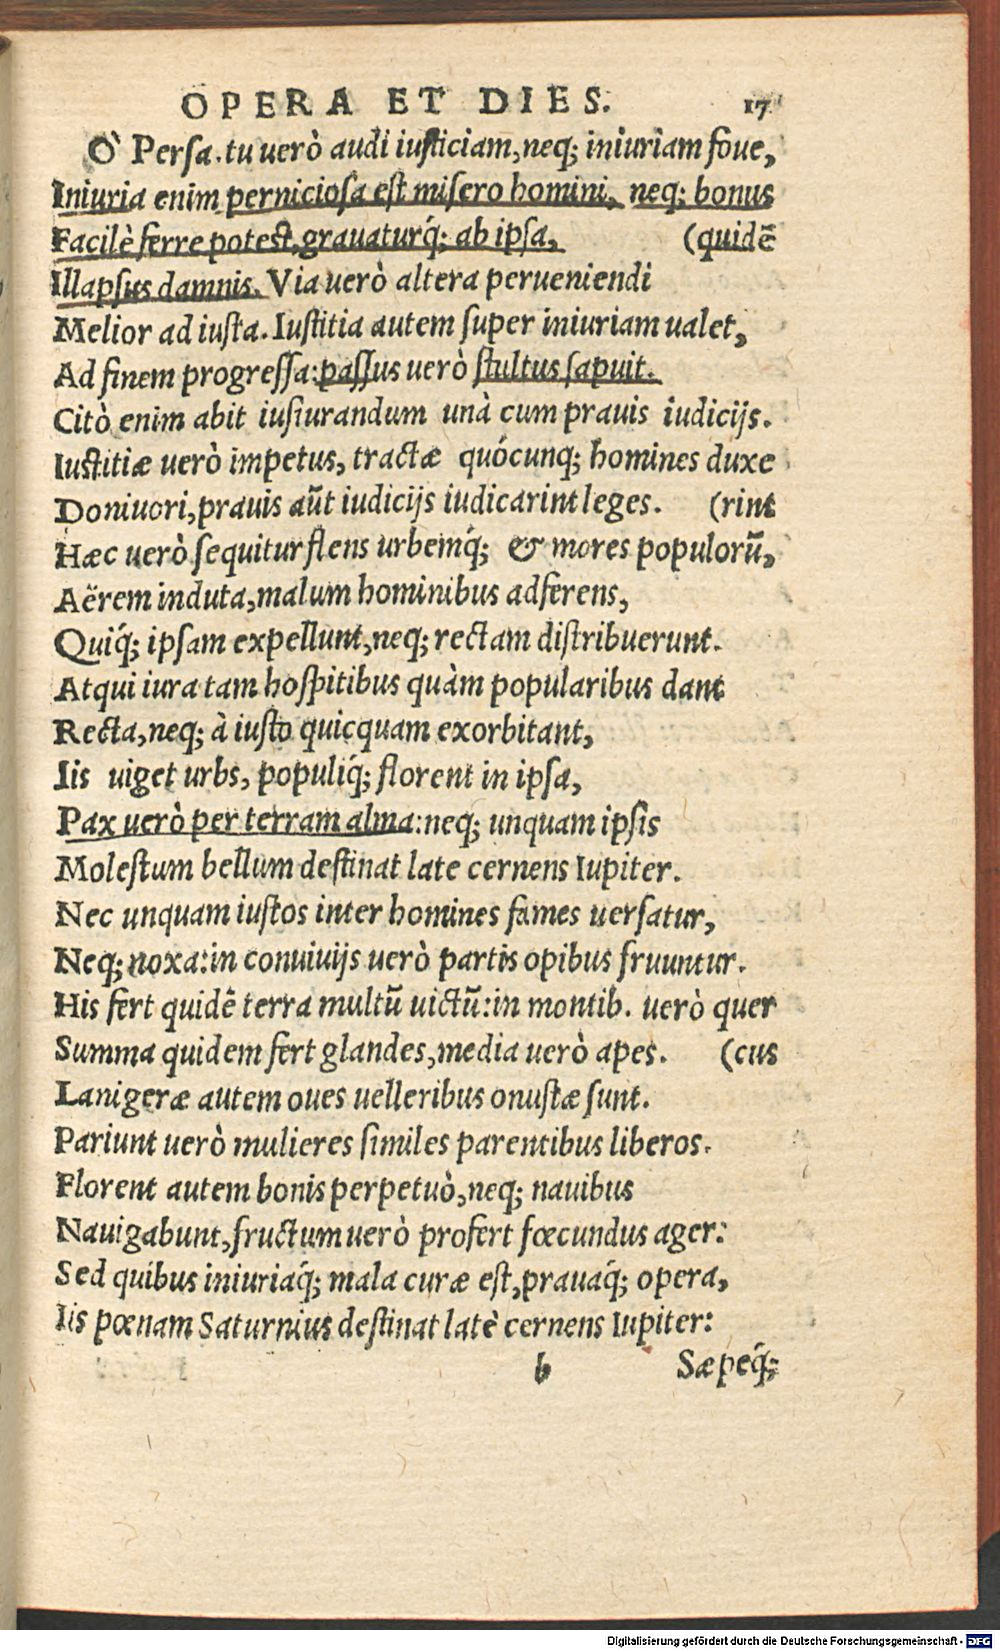 OPERA ET DIES. 17
Ò Persa. tu uerò audi iusticiam, neq; iniuriam foue,
Iniuria enim perniciosa est misero homini, neq; bonus
Facilè ferre potest, grauaturq́; ab ipsa, (quidē
Illapsus damnis. Via uerò altera perueniendi
Melior ad iusta. Iustitia autem super iniuriam ualet,
Ad finem progressa: passus uerò stultus sapuit.
Citò enim abit iusiurandum unà cum prauis iudicijs.
Iustitiæ uerò impetus, tractæ quócunq; homines duxe
Doniuori, prauis aūt iudicijs iudicarint leges. (rint
Hæc uerò sequitur flens urbemq́; & mores populorū,
Aërem induta, malum hominibus adferens,
Quiq́; ipsam expellunt, neq; rectam distribuerunt.
Atqui iura tam hospitibus quàm popularibus dant
Recta, neq; à iusto quicquam exorbitant,
Iis uiget urbs, populiq́; florent in ipsa,
Pax uerò per terram alma: neq; unquam ipsis
Molestum bellum destinat late cernens Iupiter.
Nec unquam iustos inter homines fames uersatur,
Neq; noxa: in conuiuijs uerò partis opibus fruuntur.
His fert quidē terra multū uictū: in montib. uerò quer
Summa quidem fert glandes, media uerò apes. (cus
Lanigeræ autem oues uelleribus onustæ sunt.
Pariunt uerò mulieres similes parentibus liberos.
Florent autem bonis perpetuò, neq; nauibus
Nauigabunt, fructum uerò profert fœcundus ager:
Sed quibus iniuriaq́; mala curæ est, prauaq́; opera,
Iis pœnam Saturnius destinat latè cernens Iupiter:
b Sæpeq́;
Digitalisierung gefördert durch die Deutsche Forschungsgemeinschaft - DFG